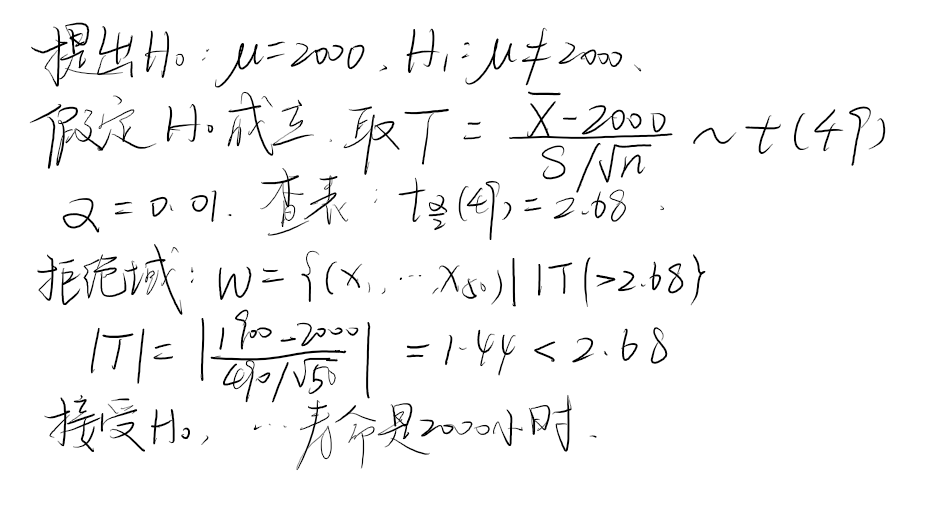 提出H₀：μ=2000、H₁：μ≠2000、
假定H₀成立. 取T = (X̄-2000)/(S/√n) ~ t(49)
α=0.01. 查表：t_{α/2}(49)=2.68.
拒绝域：W={(X₁,…,X₅₀)| |T|>2.68}
|T|=|(1900-2000)/(490/√50)| =1.44<2.68
接受H₀, …寿命是2000小时.